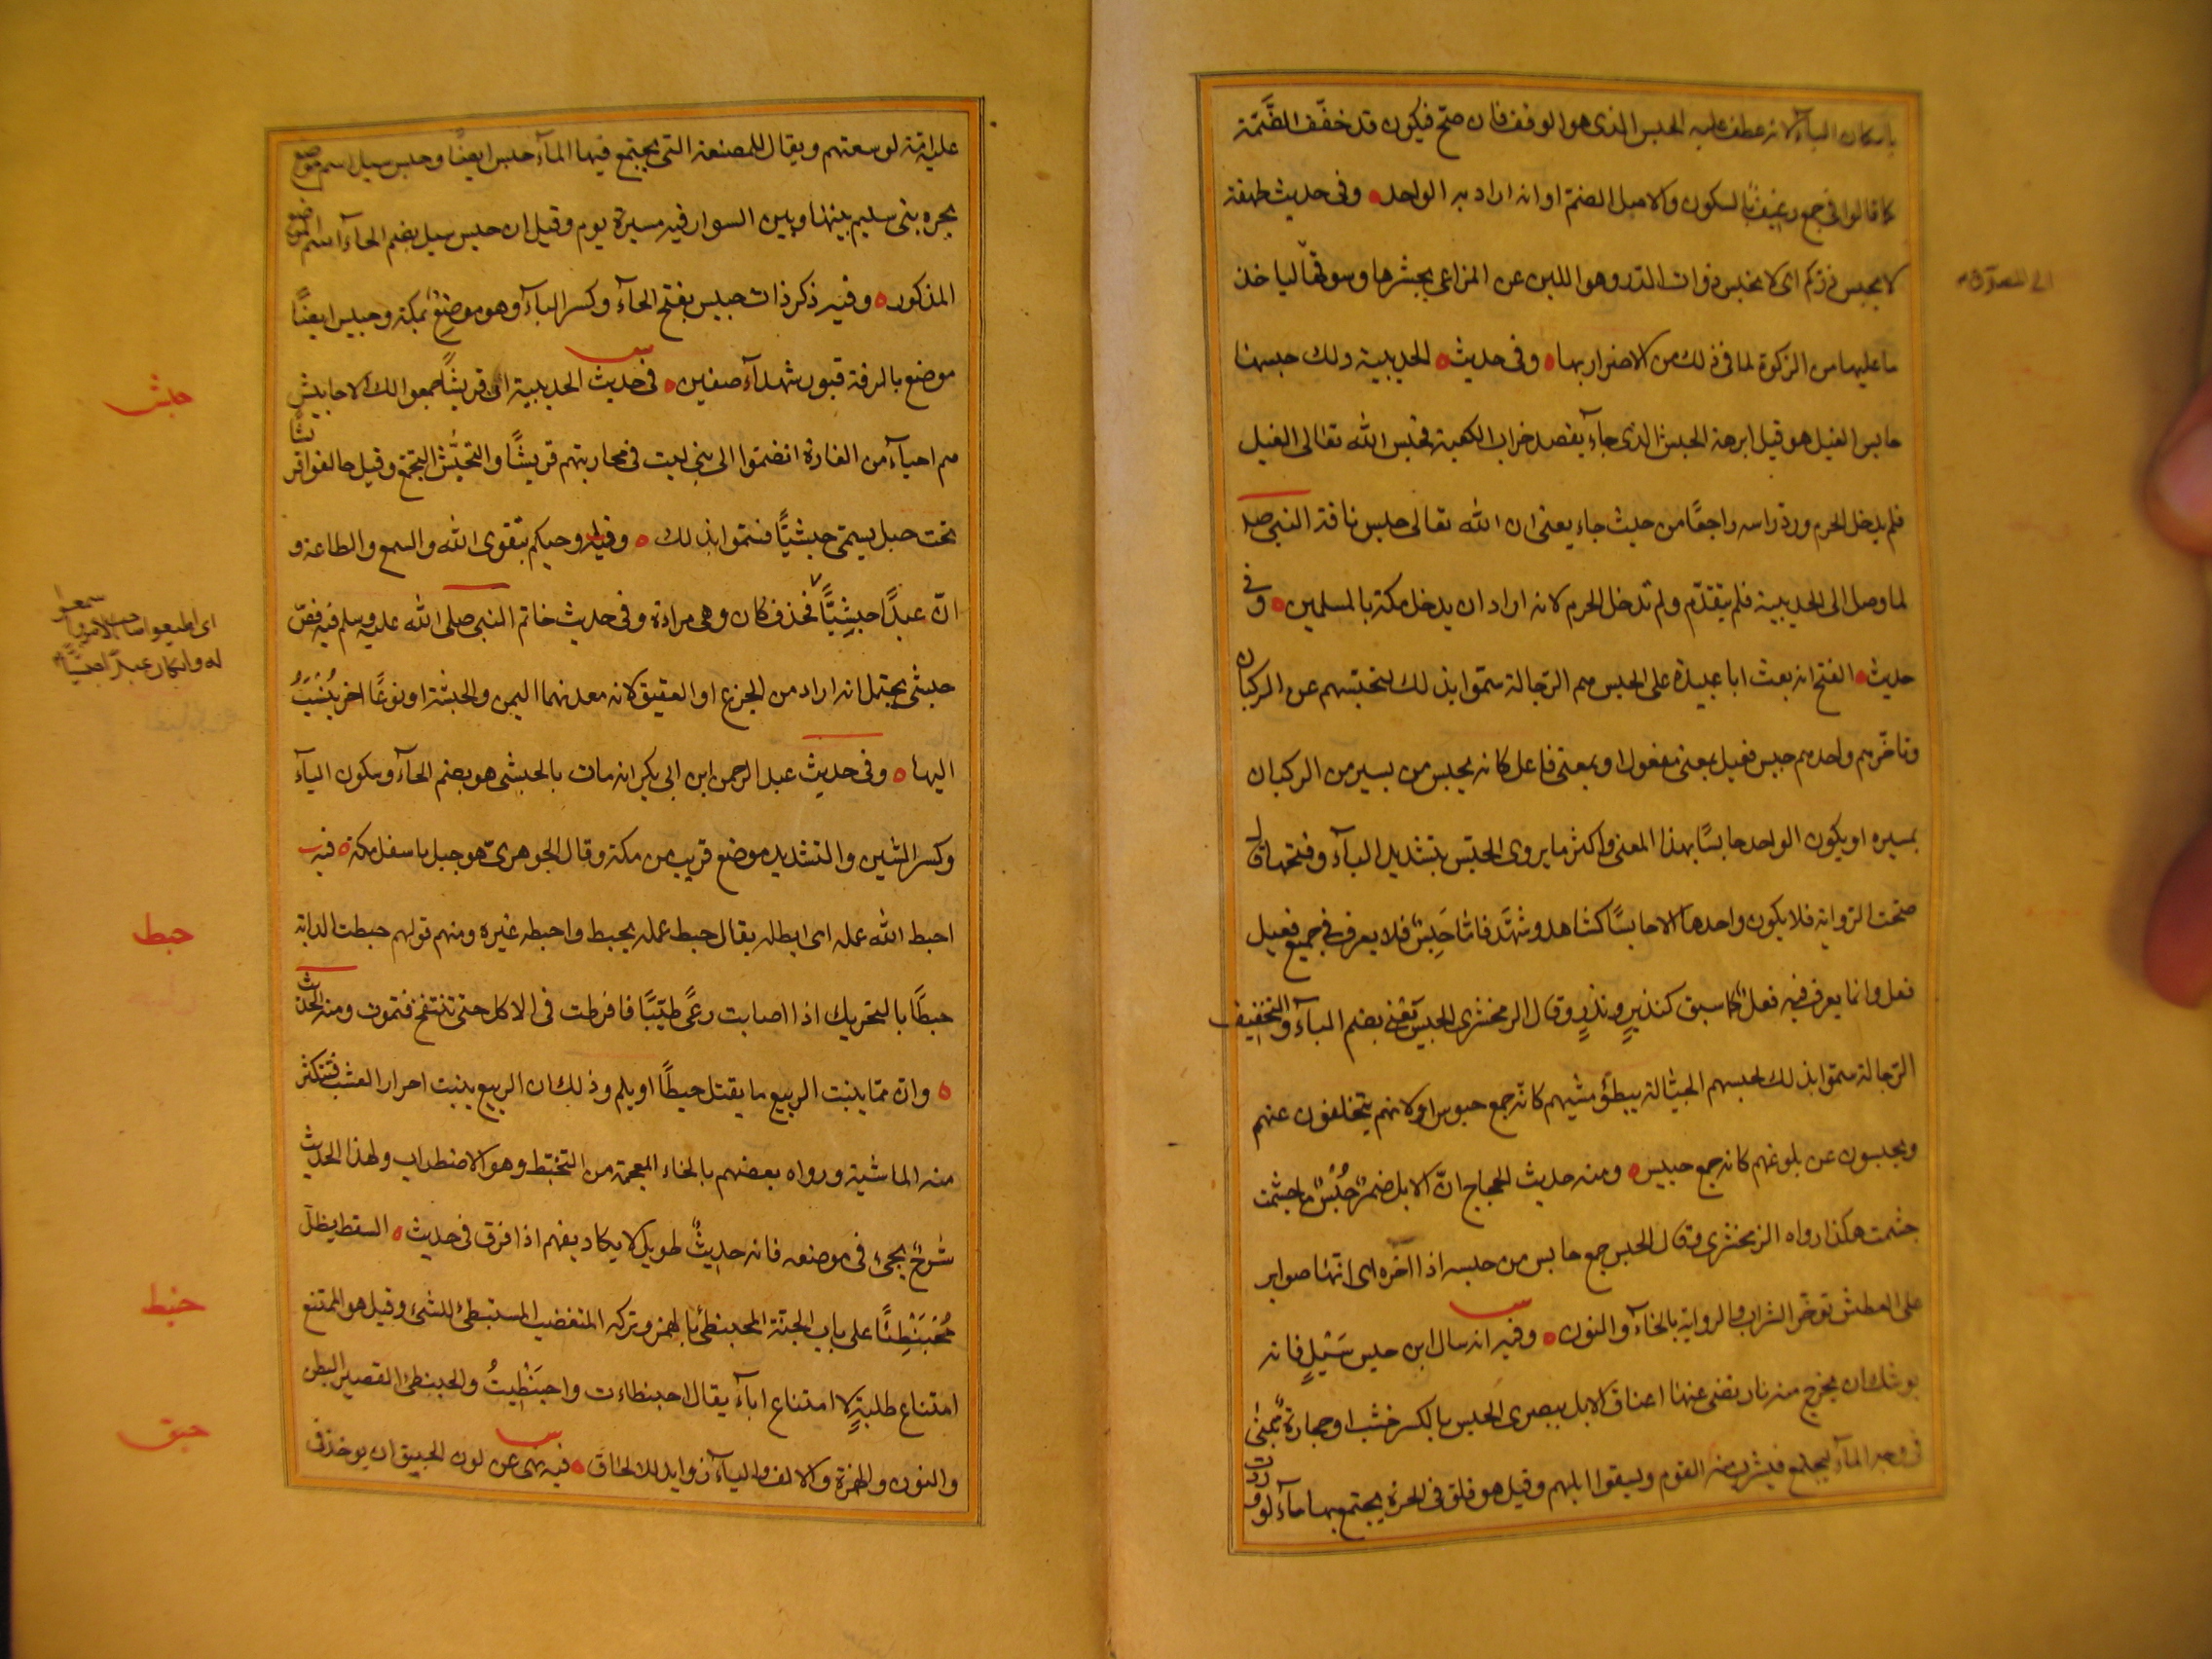 باسكان الباء لانه عطف عليه الحبس الذى هو الوقف فان صح فيكون قد خفّف الضّمّة
كما قالوا فى جمع رغيف بالسكون والاصل الضم او انه اراد به الواحد ه وفى حديث طهفة
لا يحبس درّكم اى لا يحبس ذوات الدّر وهو اللبن عن المراعى بحشرها وسوقها لياخذ
الى المصدق
ما عليها من الزكوة لما فى ذلك من الاضرار بها ه وفى حديث ه الحديبية ولك حبسها
حابس الفيل هو فيل ابرهة الحبش الذى جاء يقصد خراب الكعبة فحبس الله تعالى الفيل
فلم يدخل الحرم ورد راسه راجعًا من حيث جاء يعنى ان الله تعالى حبس ناقة النبى صلع
لما وصل الى الحديبية فلم يتقدّم ولم تدخل الحرم لانه اراد ان يدخل مكة بالمسلمين ه وفى
حديث ه الفتح انه بعث ابا عبيدة على الحبس هم الرّجالة سمّوا بذلك لتحبسهم عن الركبان
وتاخّرهم واحدهم حبيس فعيل بمعنى مفعول او بمعنى فاعل كانه يحبس من يسير من الركبان
بمسيره او يكون الواحد حابسًا بهذا المعنى واكثر ما يروى الحبّس بتشديد الباء وفتحها فان
صحت الرّواية فلا يكون واحدها الا حابسًا كشاهد وشهَّد فامّا حَبِيس فلا يعرف فى جميع فعيل
فعل وانما يعرف فيه فعل كما سبق كنذيرٍ ونذرٍ وقال الزمخشرى الحبس يعنى بضم الباء والتخفيف
الرّجالة سموا بذلك لحبسهم الخيّالة ببطؤ مشيهم كانّه جمع حبوس او لانهم يتخلفون عنهم
ويحبسون عن بلوغهم كانه جمع حبيس ه ومنه حديث الحجاج انّ الابل ضمر حُبُس ما جشمت
جشمت هكذا رواه الزمخشرى وقال الحبس جمع حابس من حبسه اذا اخّره اى انها صوابر
على العطش تؤخّر الشراب والرواية بالخاء والنون ه وفيه انه سال ابن حبس سَيَلٍ فانه
يوشك ان يخرج منه نار تضىء عنها اعناق الابل ببصرى الحبس بالكسر خشب او حجارة تبنى
فى وجه الماء ليجتمع فيشرب منه القوم وليسقوا ابلهم وقيل هو فلق فى الحرة يجتمع بها ماء لو وردت
عليه امّة لوسعتهم ويقال للمصنعة التى يجتمع فيها الماء حبس ايضًا وحبس سيل اسم موضع
بحرة بنى سليم بينها وبين السوارقيه مسيرة يوم وقيل ان حبس سيل بضم الحاء اسم للموضع
المذكور ه وفيه ذكر ذات حبيس بفتح الحاء وكسر الباء وهو موضع بمكة وحبيس ايضًا
موضع بالرقة قبور شهداء صفين ه فى حديث الحديبية ان قريشًا جمعوا لك الاحابيش
حبش
هم احياء من القارة انضموا الى بنى ليث فى محاربتهم قريشًا والتحبّش التجمّع وقيل حالفوا قريشًا
تحت جبل يسمى حبشيًّا فسمّوا بذلك ه وفيه اوصيكم بتقوى الله والسمع والطاعة و
انّ عبدًا حبشيًّا فحذف كان وهى مرادة وفى حديث خاتم النبى صلى الله عليه وسلم فيه فصّ
اى اطيعوا صاحب الامر واسمعوا
له وان كان عبدًا حبشيًّا
حبشى يحتمل انه اراد من الجزع او العقيق لانه معدنهما اليمن والحبشة او نوعًا اخر يُنْسَبُ
اليها ه وفى حديث عبد الرحمن ابن ابى بكر انه مات بالحبشى هو بضم الحاء وسكون الباء
وكسر الشين والتشديد موضع قريب من مكة وقال الجوهرى هو جبل باسفل مكة ه فيه
احبط الله عمله اى ابطله يقال حبط عمله يحبط واحبطه غيره ومنهم قولهم حبطت الدابة
حبط
حبطًا بالتحريك اذا اصابت رعًى طيّبًا فافرطت فى الاكل حتى تنتفخ فتموت ومنه الحديث
ه وانّ ممّا ينبت الربيع ما يقتل حبطًا او يلم وذلك ان الربيع ينبت احرار العشب فتستكثر
منه الماشية ورواه بعضهم بالخاء المعجمة من التخبّط وهو الاضطراب ولهذا الحديث
شرحٌ يجىء فى موضعه فانه حديثٌ طويل لا يكاد يفهم اذا فرق فى حديث ه السقط يظلّ
مُحْبَنْطِئًا على باب الجنّة المحبنطئ بالهمز وتركه المتغضب المستبطئ للشىء وقيل هو الممتنع
حبنط
امتناع طلبةٍ لا امتناع اباء يقال احبنطاءت واحبَنْطَيتُ والحبنطى القصير البطن
والنون والهمزة والالف والياء زوايد للالحاق ه فيه نهى عن لون الحبيق ان يوخذ فى
حبق